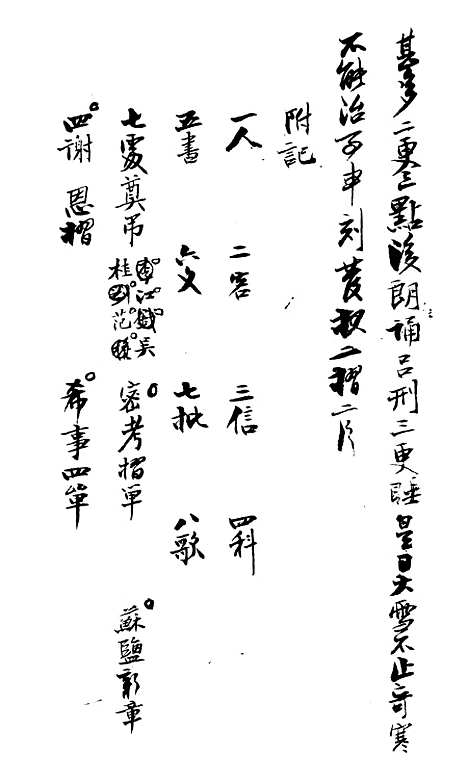 甚多二更三點後朗誦呂刑三更睡是日大雪不止奇寒
不能治事申刻發摺二片
附記
一人 二客 三信 四科
五書 六文 七批 八歌
七處奠弔 江 吳 桂 劉 范 密考摺單 蘇鹽新章
四謝恩摺 希事四單